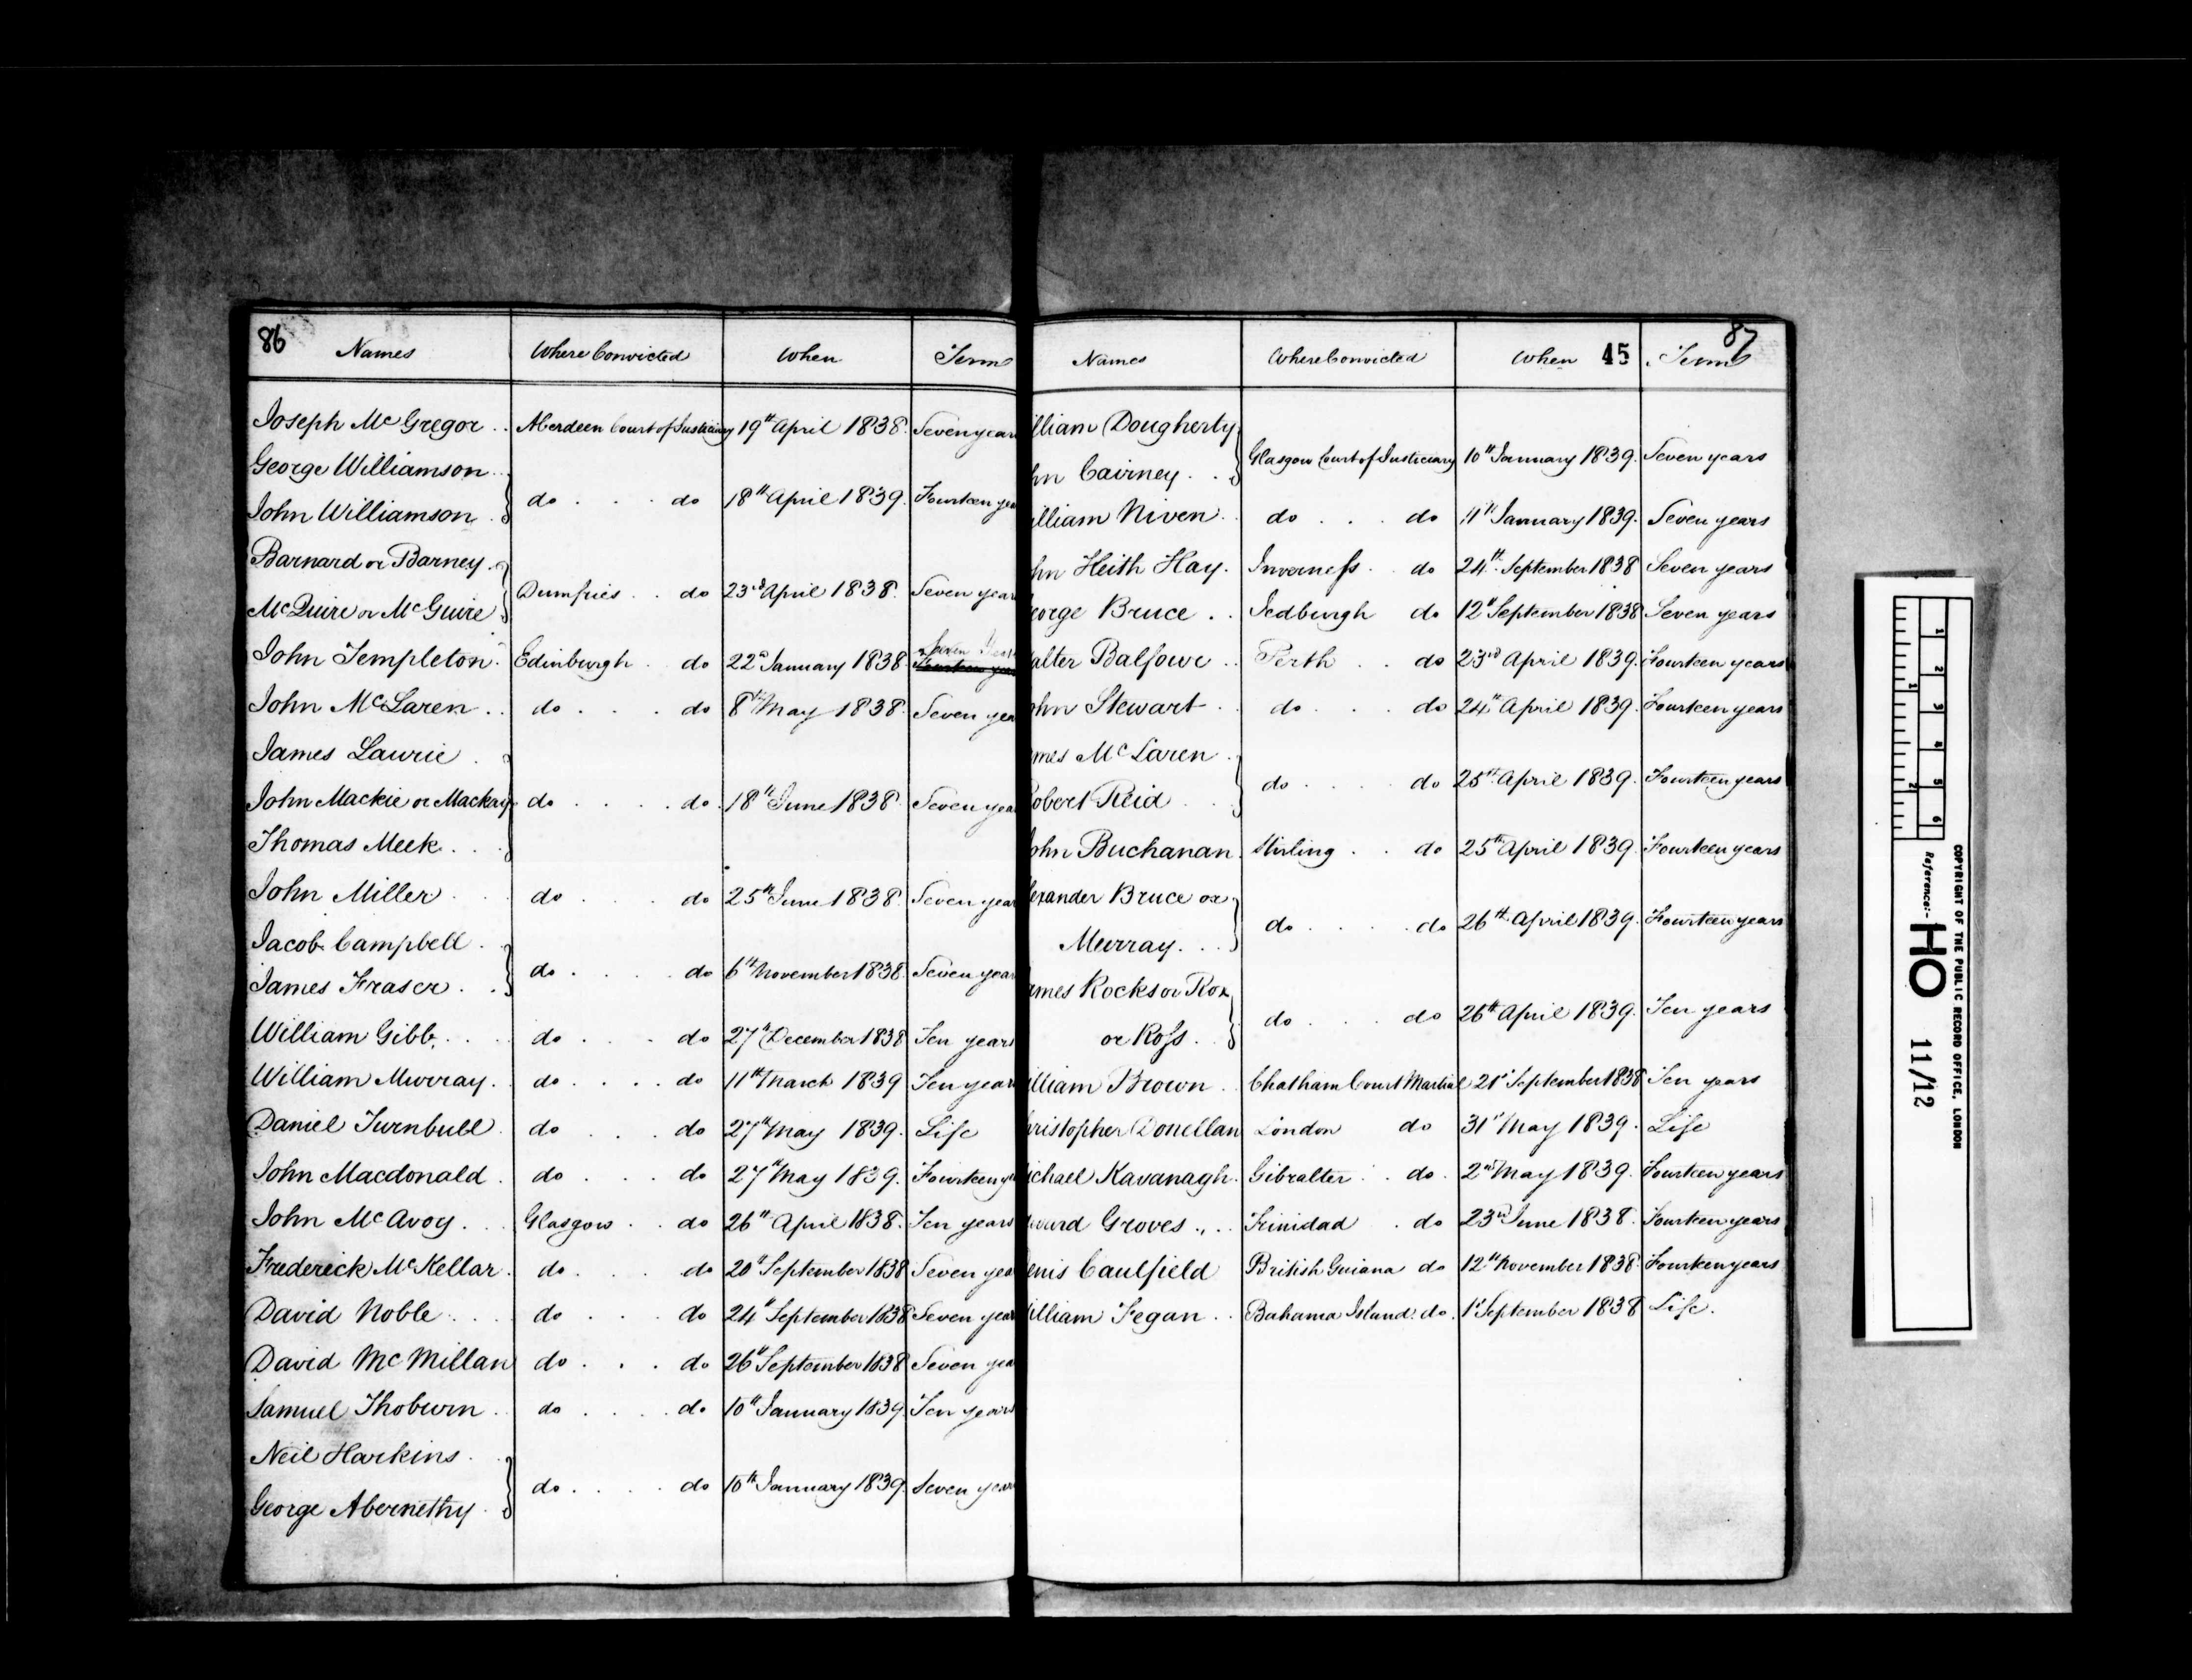 86 Names Where Convicted When Term
Joseph McGregor Aberdeen Court of Justiciary 19th April 1838 Seven year
George Williamson
do do 18th April 1839 Fourteen yea
John Williamson
Barnard or Barney
Dumfries do 23rd April 1838 Seven year
McQuire or McGuire
Seven Years
John Templeton Edinburgh do 22d January 1838 Fourteen years
John McLaren do do 8th May 1838 Seven yea
James Laurie
John Mackie or Mackay do do 18th June 1838 Seven yea
Thomas Meek
John Miller do do 25th June 1838 Seven year
Jacob Campbell
do do 6th November 1838 Seven year
James Fraser
William Gibb do do 27th December 1838 Ten years
William Murray do do 11th March 1839 Ten year
Daniel Turnbull do do 27th May 1839 Life
John Macdonald do do 27th May 1839 Fourteen ye
John McAvoy Glasgow do 26th April 1838 Ten years
Frederick McKellar do do 20th September 1838 Seven yea
David Noble do do 24th September 1838 Seven year
David McMillan do do 26th September 1838 Seven yea
Samuel Thoburn do do 10th January 1839 Ten years
Neil Harkins
do do 10th January 1839 Seven year
George Abernethy
87
Names Where Convicted When 45 Term
lliam Dougherty
Glasgow Court of Justiciary 10th January 1839 Seven years
hn Cairney
illiam Niven do do 11th January 1839 Seven years
hn Keith Hay Inverness do 24th September 1838 Seven years
eorge Bruce Jedburgh do 12th September 1838 Seven years
alter Balfour Perth do 23rd April 1839 Fourteen years
ohn Stewart do do 24th April 1839 Fourteen years
mes McLaren
do do 25th April 1839 Fourteen years
obert Reid
ohn Buchanan Stirling do 25th April 1839 Fourteen years
exander Bruce or
do do 26th April 1839 Fourteen years
Murray
ames Rocks or Rox
do do 26th April 1839 Ten years
or Ross
illiam Brown Chatham Court Martial 21st September 1838 Ten years
hristopher Donellan London do 31st May 1839 Life
ichael Kavanagh Gibralter do 2nd May 1839 Fourteen years
ward Groves Trinidad do 23rd June 1838 Fourteen years
enis Caulfield British Guiana do 12th November 1838 Fourteen years
illiam Fegan Bahama Island do 1st September 1838 Life.
1 2 3 4 5 6
1 2
COPYRIGHT OF THE PUBLIC RECORD OFFICE, LONDON
Reference:- HO 11/12